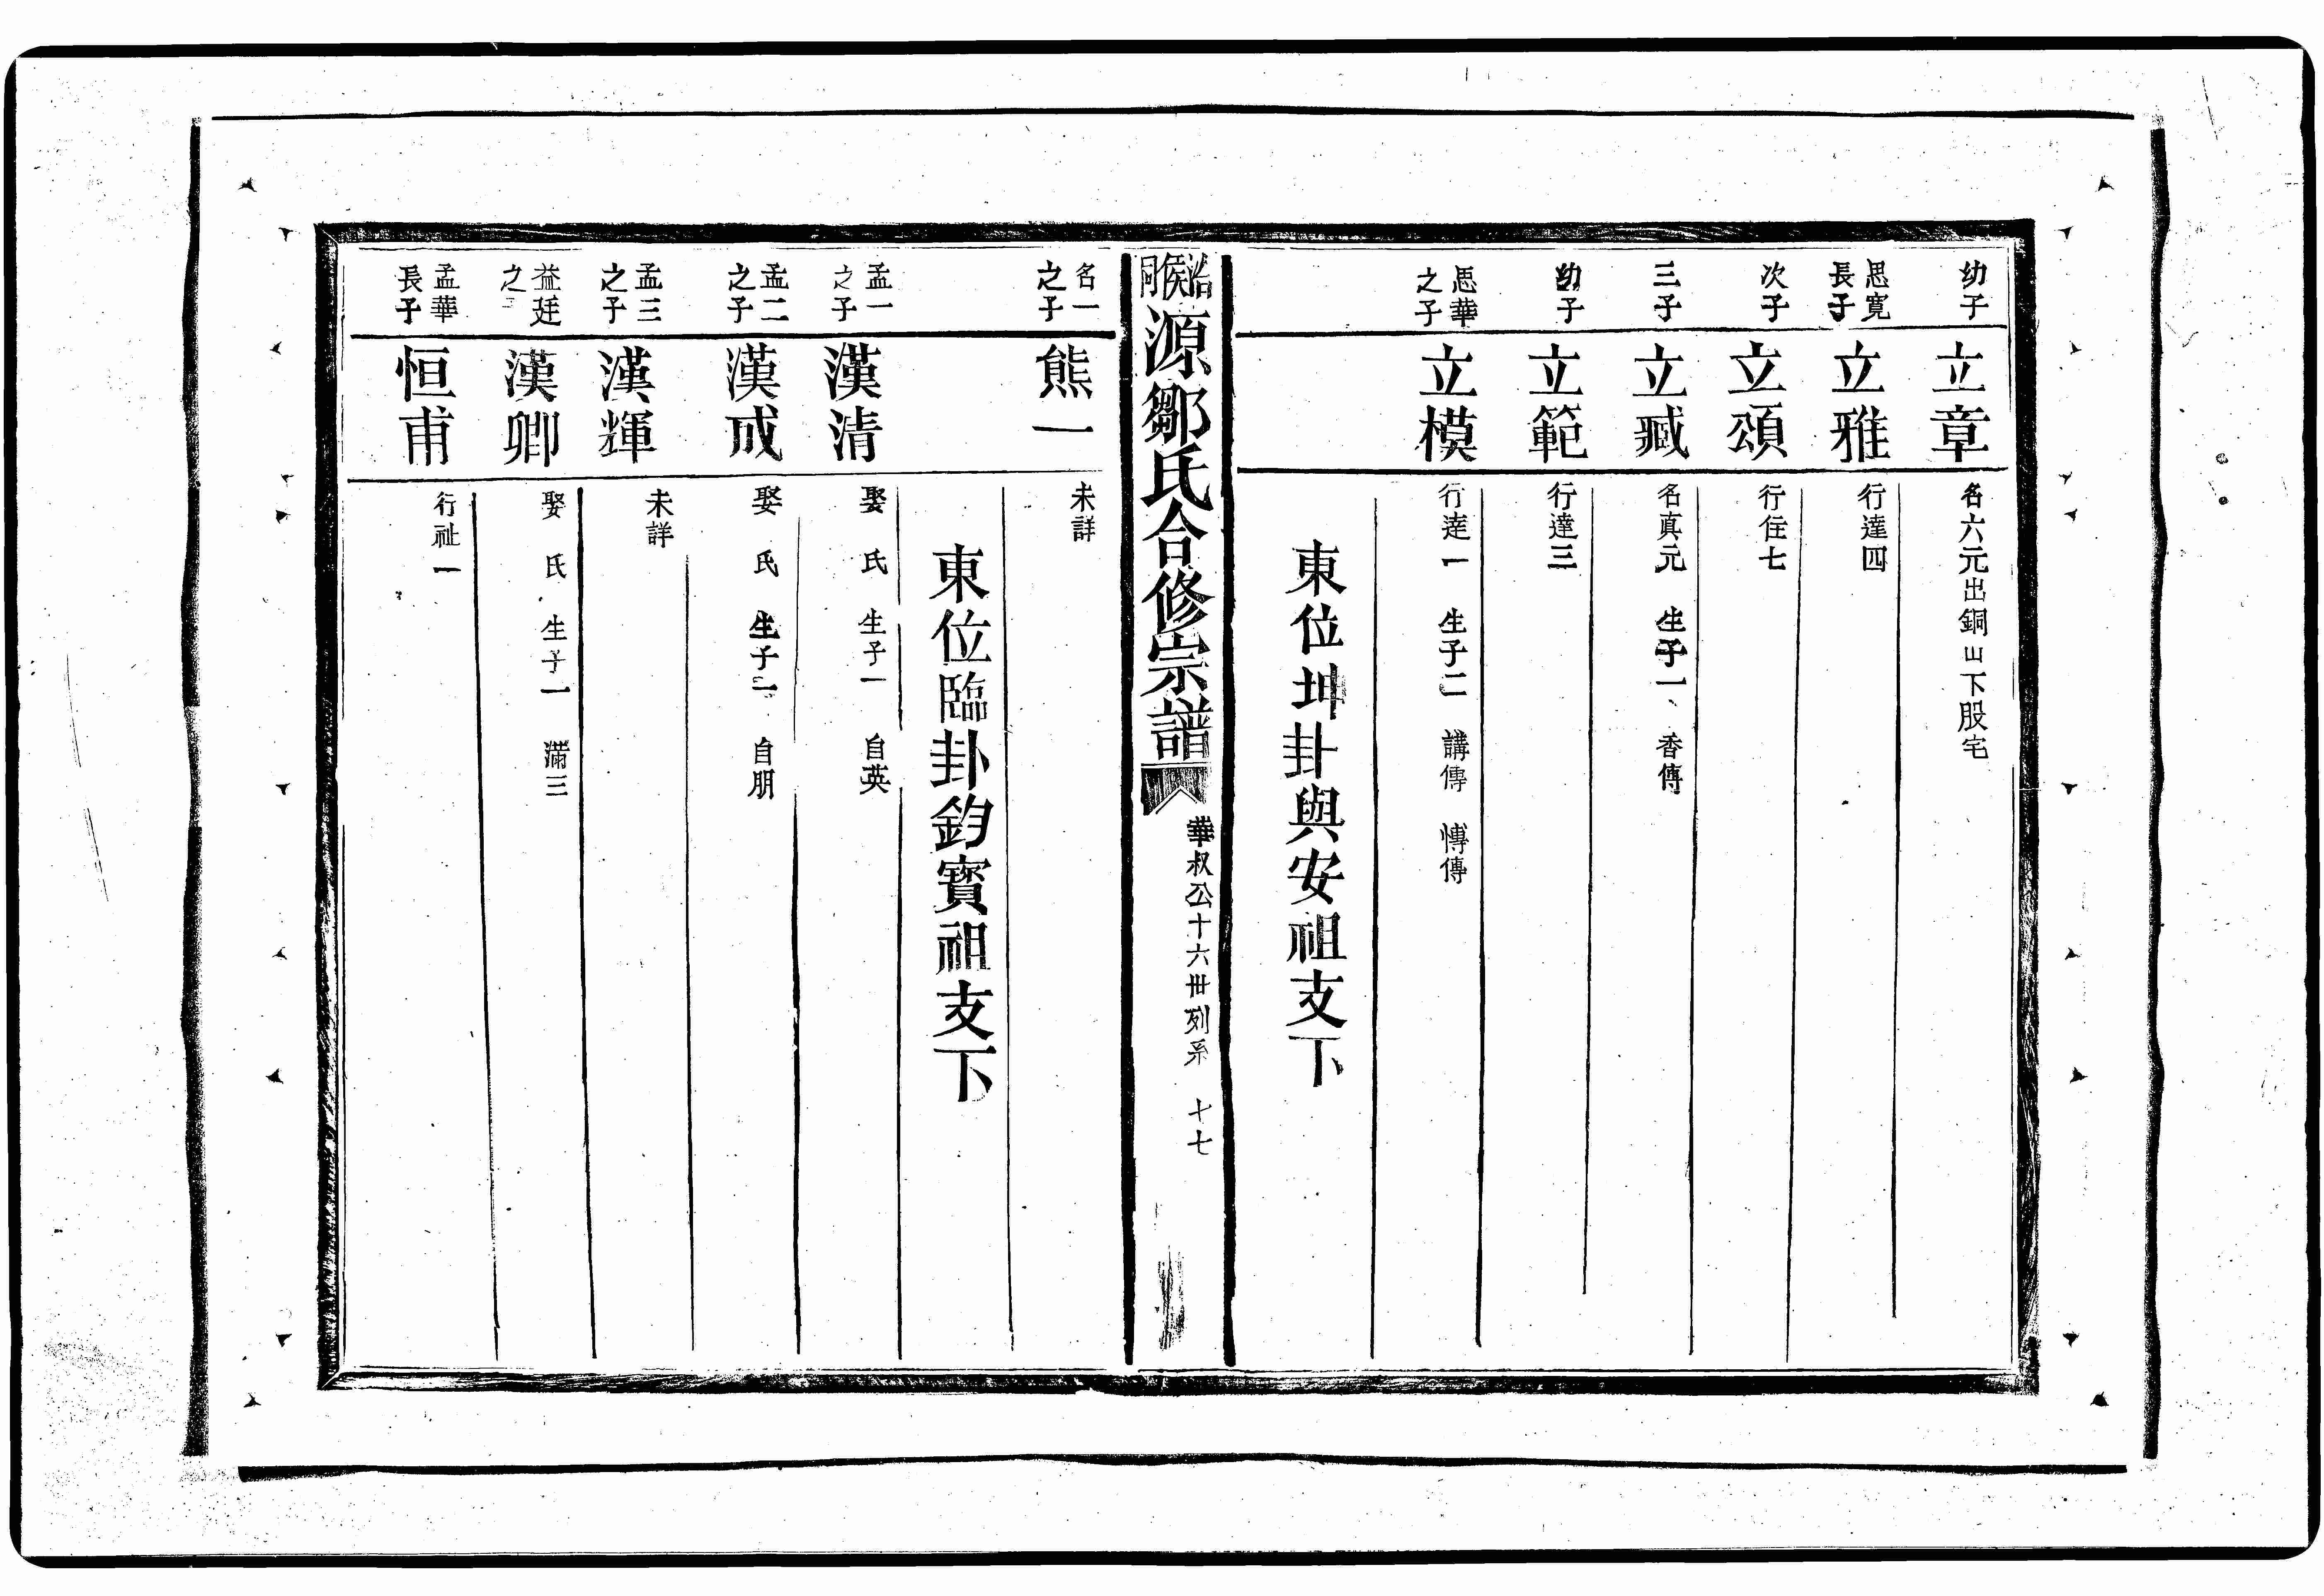 幼子
立章
名六元出銅山下股宅
思寬長子
立雅
行達四
次子
立頌
行住七
三子
立臧
名真元 生子一 香傳
幼子
立範
行達三
思華之子
立模
行達一 生子二 講傳 愽傳
東位坤卦與安祖支下
源鄒氏合修宗譜
華叔公十六世列系 十七
名一之子
熊一
未詳
東位臨卦鈞寳祖支下
孟一之子
漢清
娶 氏 生子一 自英
孟二之子
漢成
娶 氏 生子一 自朋
孟三之子
漢輝
未詳
益廷之
漢卿
娶 氏 生子一 滿三
孟華長子
恒甫
行祉一